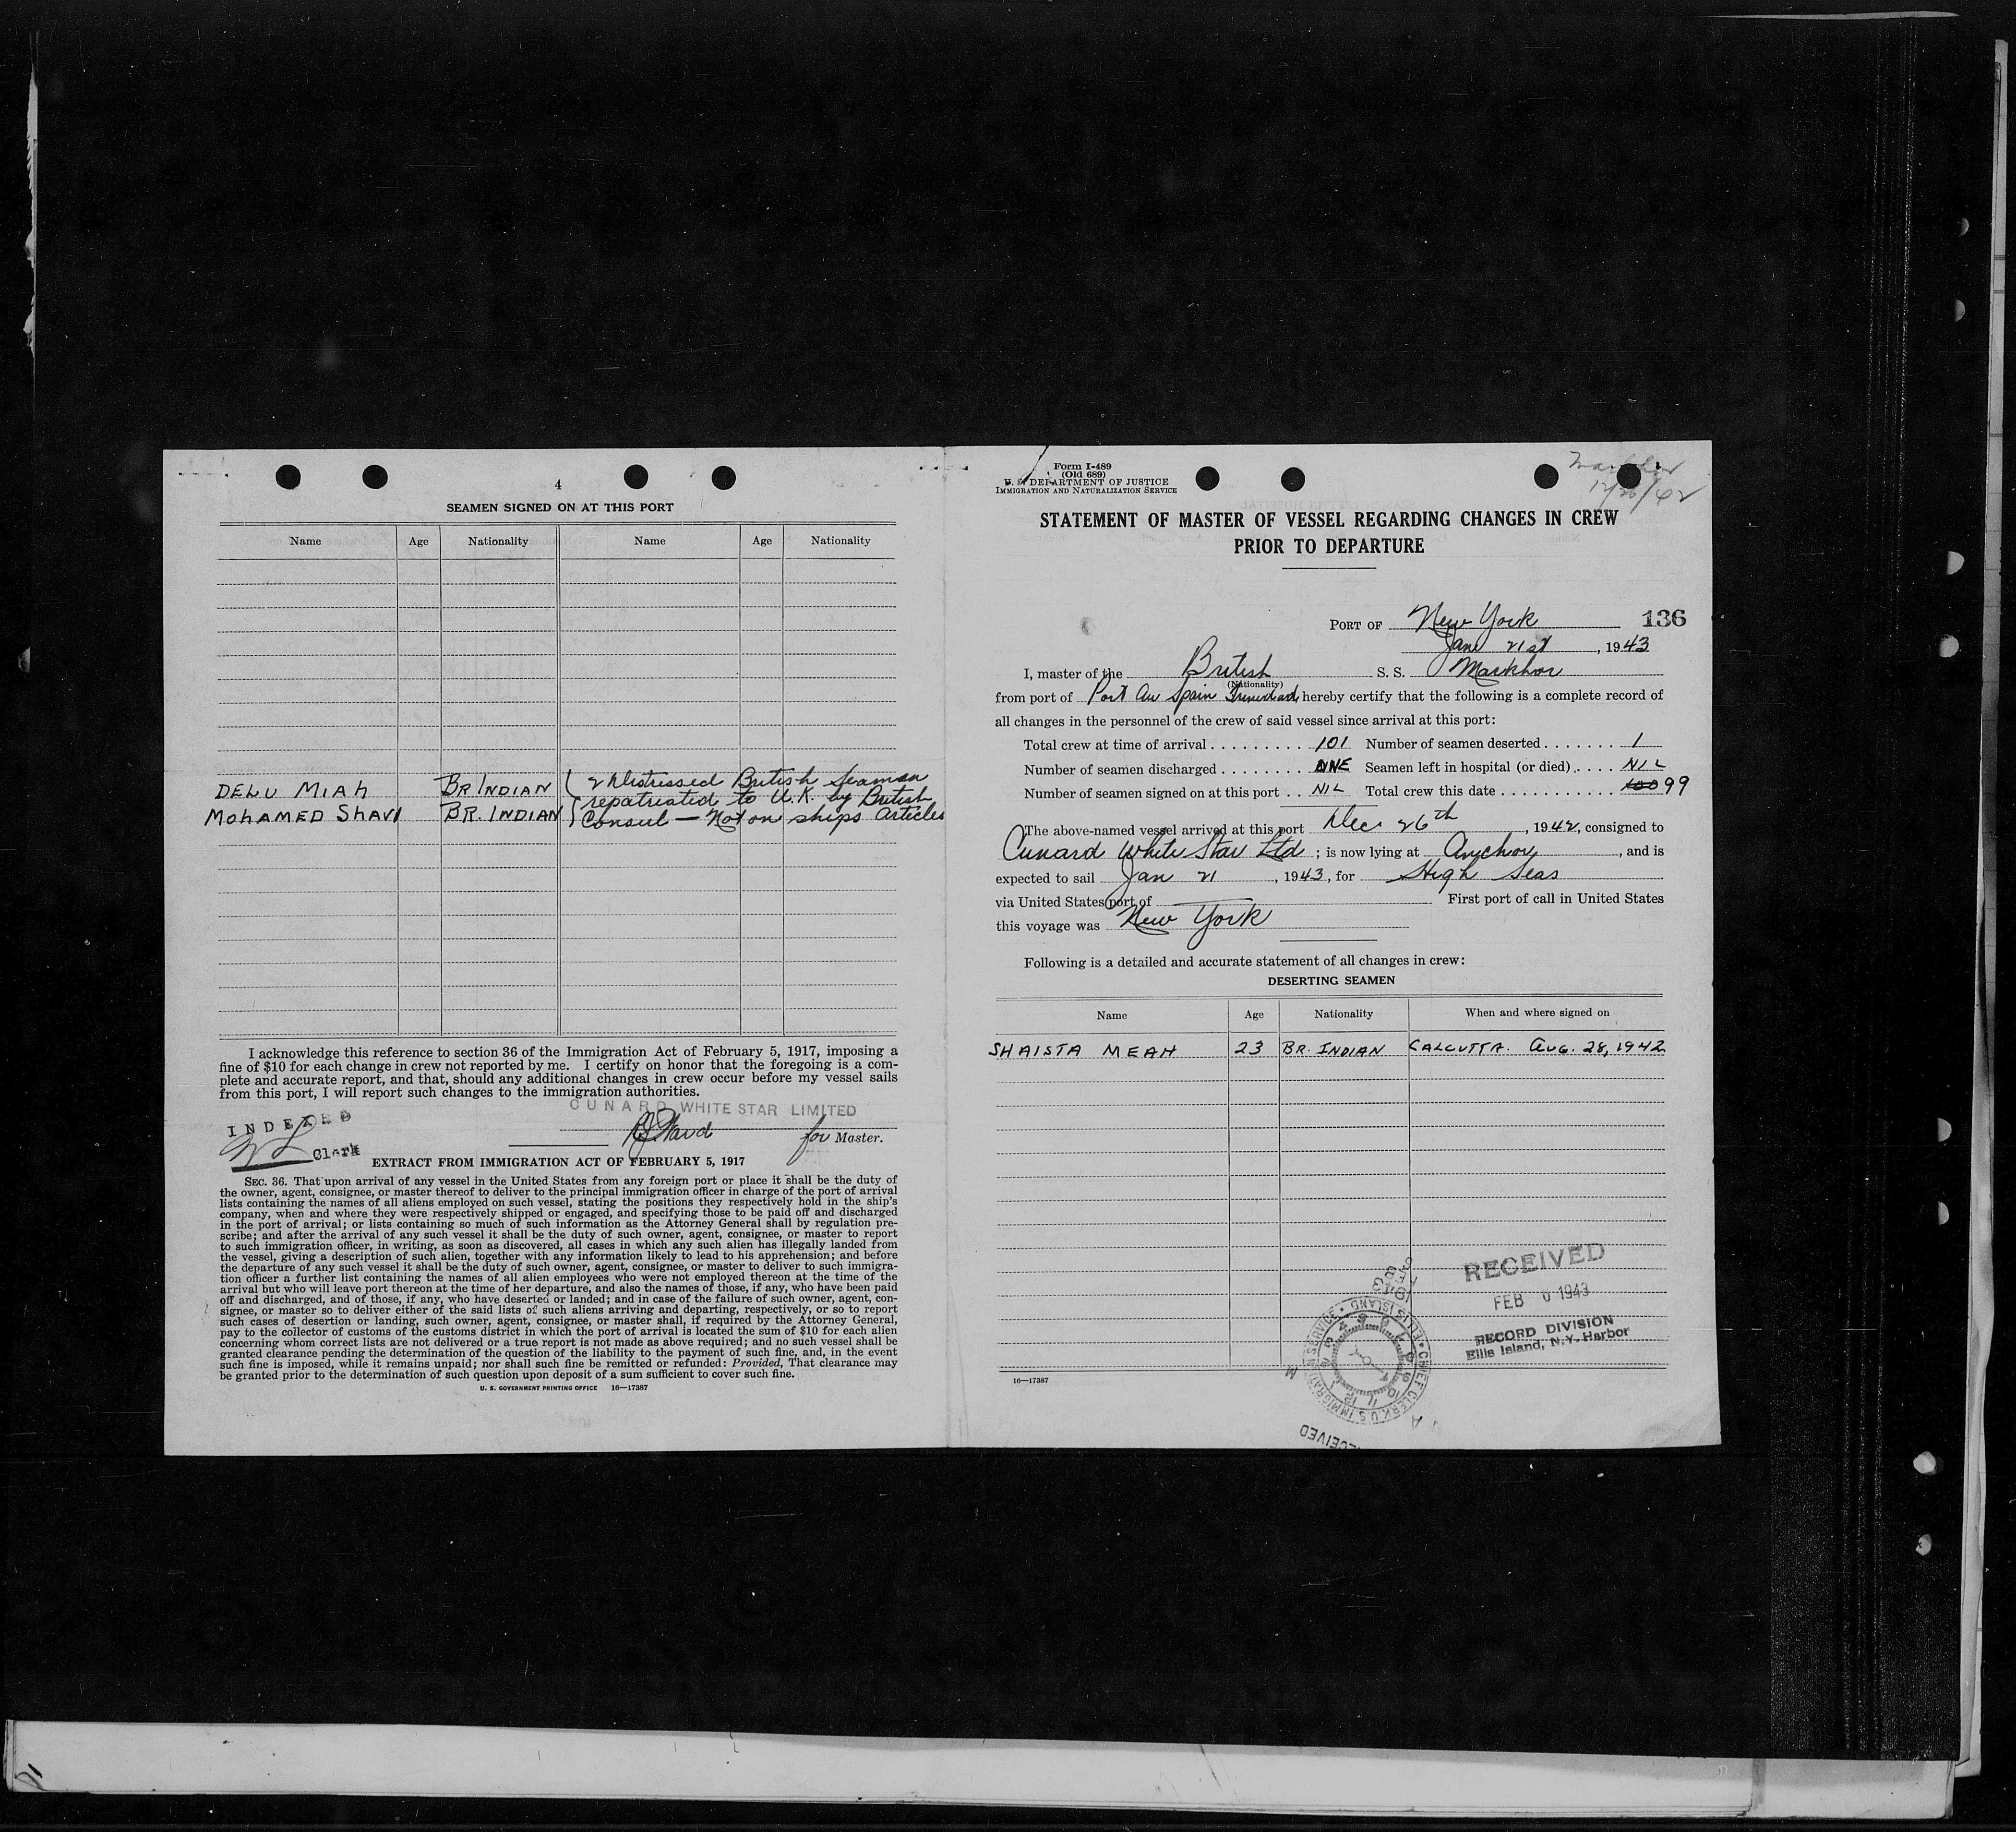 4
SEAMEN SIGNED ON AT THIS PORT
Name Age Nationality Name Age Nationality
DELU MIAH BR INDIAN
MOHAMED SHAVI BR. INDIAN
2 Distressed British Seaman
repatriated to U.K. by British
Consul — Not on ships Articles
I acknowledge this reference to section 36 of the Immigration Act of February 5, 1917, imposing a
fine of $10 for each change in crew not reported by me. I certify on honor that the foregoing is a com-
plete and accurate report, and that, should any additional changes in crew occur before my vessel sails
from this port, I will report such changes to the immigration authorities.
CUNARD WHITE STAR LIMITED
INDEXED
Clerk
for Master.
EXTRACT FROM IMMIGRATION ACT OF FEBRUARY 5, 1917
SEC. 36. That upon arrival of any vessel in the United States from any foreign port or place it shall be the duty of
the owner, agent, consignee, or master thereof to deliver to the principal immigration officer in charge of the port of arrival
lists containing the names of all aliens employed on such vessel, stating the positions they respectively hold in the ship's
company, when and where they were respectively shipped or engaged, and specifying those to be paid off and discharged
in the port of arrival; or lists containing so much of such information as the Attorney General shall by regulation pre-
scribe; and after the arrival of any such vessel it shall be the duty of such owner, agent, consignee, or master to report
to such immigration officer, in writing, as soon as discovered, all cases in which any such alien has illegally landed from
the vessel, giving a description of such alien, together with any information likely to lead to his apprehension; and before
the departure of any such vessel it shall be the duty of such owner, agent, consignee, or master to deliver to such immigra-
tion officer a further list containing the names of all alien employees who were not employed thereon at the time of the
arrival but who will leave port thereon at the time of her departure, and also the names of those, if any, who have been paid
off and discharged, and of those, if any, who have deserted or landed; and in case of the failure of such owner, agent, con-
signee, or master so to deliver either of the said lists of such aliens arriving and departing, respectively, or so to report
such cases of desertion or landing, such owner, agent, consignee, or master shall, if required by the Attorney General,
pay to the collector of customs of the customs district in which the port of arrival is located the sum of $10 for each alien
concerning whom correct lists are not delivered or a true report is not made as above required; and no such vessel shall be
granted clearance pending the determination of the question of the liability to the payment of such fine, and, in the event
such fine is imposed, while it remains unpaid; nor shall such fine be remitted or refunded: Provided, That clearance may
be granted prior to the determination of such question upon deposit of a sum sufficient to cover such fine.
U. S. GOVERNMENT PRINTING OFFICE 16—17387
Form I-489
(Old 689)
U. S. DEPARTMENT OF JUSTICE
IMMIGRATION AND NATURALIZATION SERVICE
Markhor
12/26/42
STATEMENT OF MASTER OF VESSEL REGARDING CHANGES IN CREW
PRIOR TO DEPARTURE
PORT OF New York 136
Jan 21st, 1943
I, master of the British S. S. Markhor
(Nationality)
from port of Port au Spain Trinidad, hereby certify that the following is a complete record of
all changes in the personnel of the crew of said vessel since arrival at this port:
Total crew at time of arrival 101 Number of seamen deserted 1
Number of seamen discharged ONE Seamen left in hospital (or died) NIL
Number of seamen signed on at this port NIL Total crew this date 100 99
The above-named vessel arrived at this port Dec 26th, 1942, consigned to
Cunard White Star Ltd; is now lying at Anchor, and is
expected to sail Jan 21, 1943, for High Seas
via United States port of — First port of call in United States
this voyage was New York
Following is a detailed and accurate statement of all changes in crew:
DESERTING SEAMEN
Name Age Nationality When and where signed on
SHAISTA MEAH 23 BR. INDIAN CALCUTTA. AUG. 28, 1942
RECEIVED
FEB 6 1943
RECORD DIVISION
Ellis Island, N.Y. Harbor
1943 FEB
CHIEF CLERK U.S. IMMIGRATION SERVICE • ELLIS ISLAND
16—17387
RECEIVED